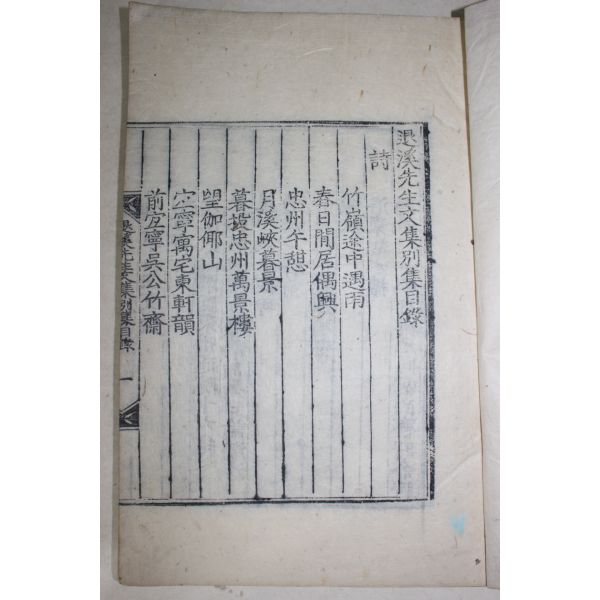 退溪先生文集別集目錄
詩
竹嶺途中遇雨
春日閒居偶興
忠州午憇
月溪峽暮景
暮投忠州萬景樓
望伽倻山
宜寧寓宅東軒韻
前宜寧吳公竹齋
退溪先生文集別集目錄
一